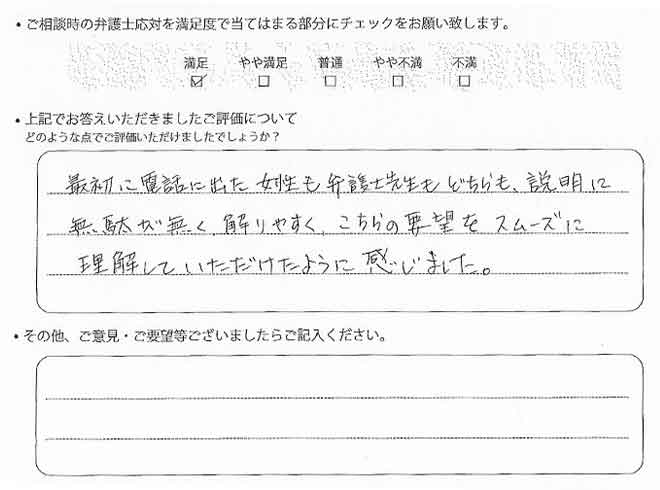 ・ご相談時の弁護士応対を満足度で当てはまる部分にチェックをお願い致します。
満足 やや満足 普通 やや不満 不満
☑ □ □ □ □
・上記でお答えいただきましたご評価について
どのような点でご評価いただけましたでしょうか？
最初に電話に出た女性も弁護士先生もどちらも、説明に
無駄が無く、解りやすく、こちらの要望をスムーズに
理解していただけたように感じました。
・その他、ご意見・ご要望等ございましたらご記入ください。